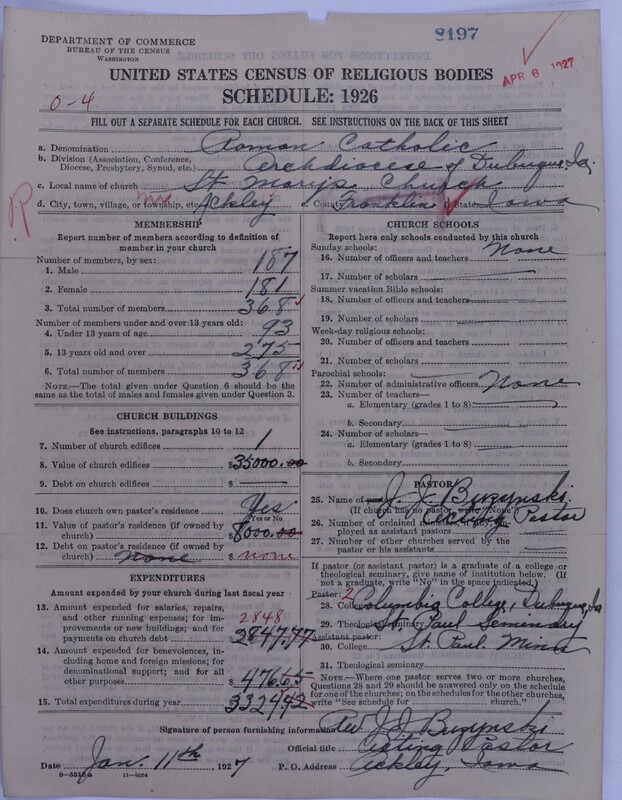 8197
APR 6 1927
DEPARTMENT OF COMMERCE
BUREAU OF THE CENSUS
WASHINGTON
UNITED STATES CENSUS OF RELIGIOUS BODIES
SCHEDULE: 1926
0-4
FILL OUT A SEPARATE SCHEDULE FOR EACH CHURCH. SEE INSTRUCTIONS ON THE BACK OF THIS SHEET
a. Denomination Roman Catholic
b. Division (Association, Conference, Diocese, Presbytery, Synod, etc.) Archdiocese of Dubuque, Ia.
c. Local name of church St. Mary's Church
d. City, town, village, or township, etc. Ackley e. County Franklin f. State Iowa
R
MEMBERSHIP
Report number of members according to definition of member in your church
Number of members, by sex:
1. Male 187
2. Female 181
3. Total number of members 368
Number of members under and over 13 years old:
4. Under 13 years of age 93
5. 13 years old and over 275
6. Total number of members 368
NOTE.—The total given under Question 6 should be the same as the total of males and females given under Question 3.
CHURCH BUILDINGS
See instructions, paragraphs 10 to 12
7. Number of church edifices 1
8. Value of church edifices $35000.00
9. Debt on church edifices $
10. Does church own pastor's residence Yes
Yes or No
11. Value of pastor's residence (if owned by church) $8000.00
12. Debt on pastor's residence (if owned by church) none $ none
EXPENDITURES
Amount expended by your church during last fiscal year
13. Amount expended for salaries, repairs, and other running expenses; for improvements or new buildings; and for payments on church debt 2848 $2847.77
14. Amount expended for benevolences, including home and foreign missions; for denominational support; and for all other purposes $476.65
15. Total expenditures during year $3324.42
CHURCH SCHOOLS
Report here only schools conducted by this church
Sunday schools:
16. Number of officers and teachers None
17. Number of scholars
Summer vacation Bible schools:
18. Number of officers and teachers
19. Number of scholars
Week-day religious schools:
20. Number of officers and teachers
21. Number of scholars
Parochial schools:
22. Number of administrative officers None
23. Number of teachers—
a. Elementary (grades 1 to 8)
b. Secondary
24. Number of scholars—
a. Elementary (grades 1 to 8)
b. Secondary
PASTOR
25. Name of J. J. Buzynski
(If church has no pastor, write "None") Acting Pastor
26. Number of ordained ministers, if any, employed as assistant pastors
27. Number of other churches served by the pastor or his assistants
If pastor (or assistant pastor) is a graduate of a college or theological seminary, give name of institution below. (If not a graduate, write "No" in the space indicated.)
Pastor: 2
28. College Columbia College, Dubuque, Ia
29. Theological seminary St. Paul Seminary
Assistant pastor:
30. College St. Paul. Minn
31. Theological seminary
NOTE.—Where one pastor serves two or more churches, Questions 28 and 29 should be answered only on the schedule for one of the churches; on the schedules for the other churches, write "See schedule for church."
Signature of person furnishing information Rev J. J. Buzynski
Official title Acting Pastor
Date Jan. 11th, 1927 P. O. Address Ackley, Iowa
11-9034